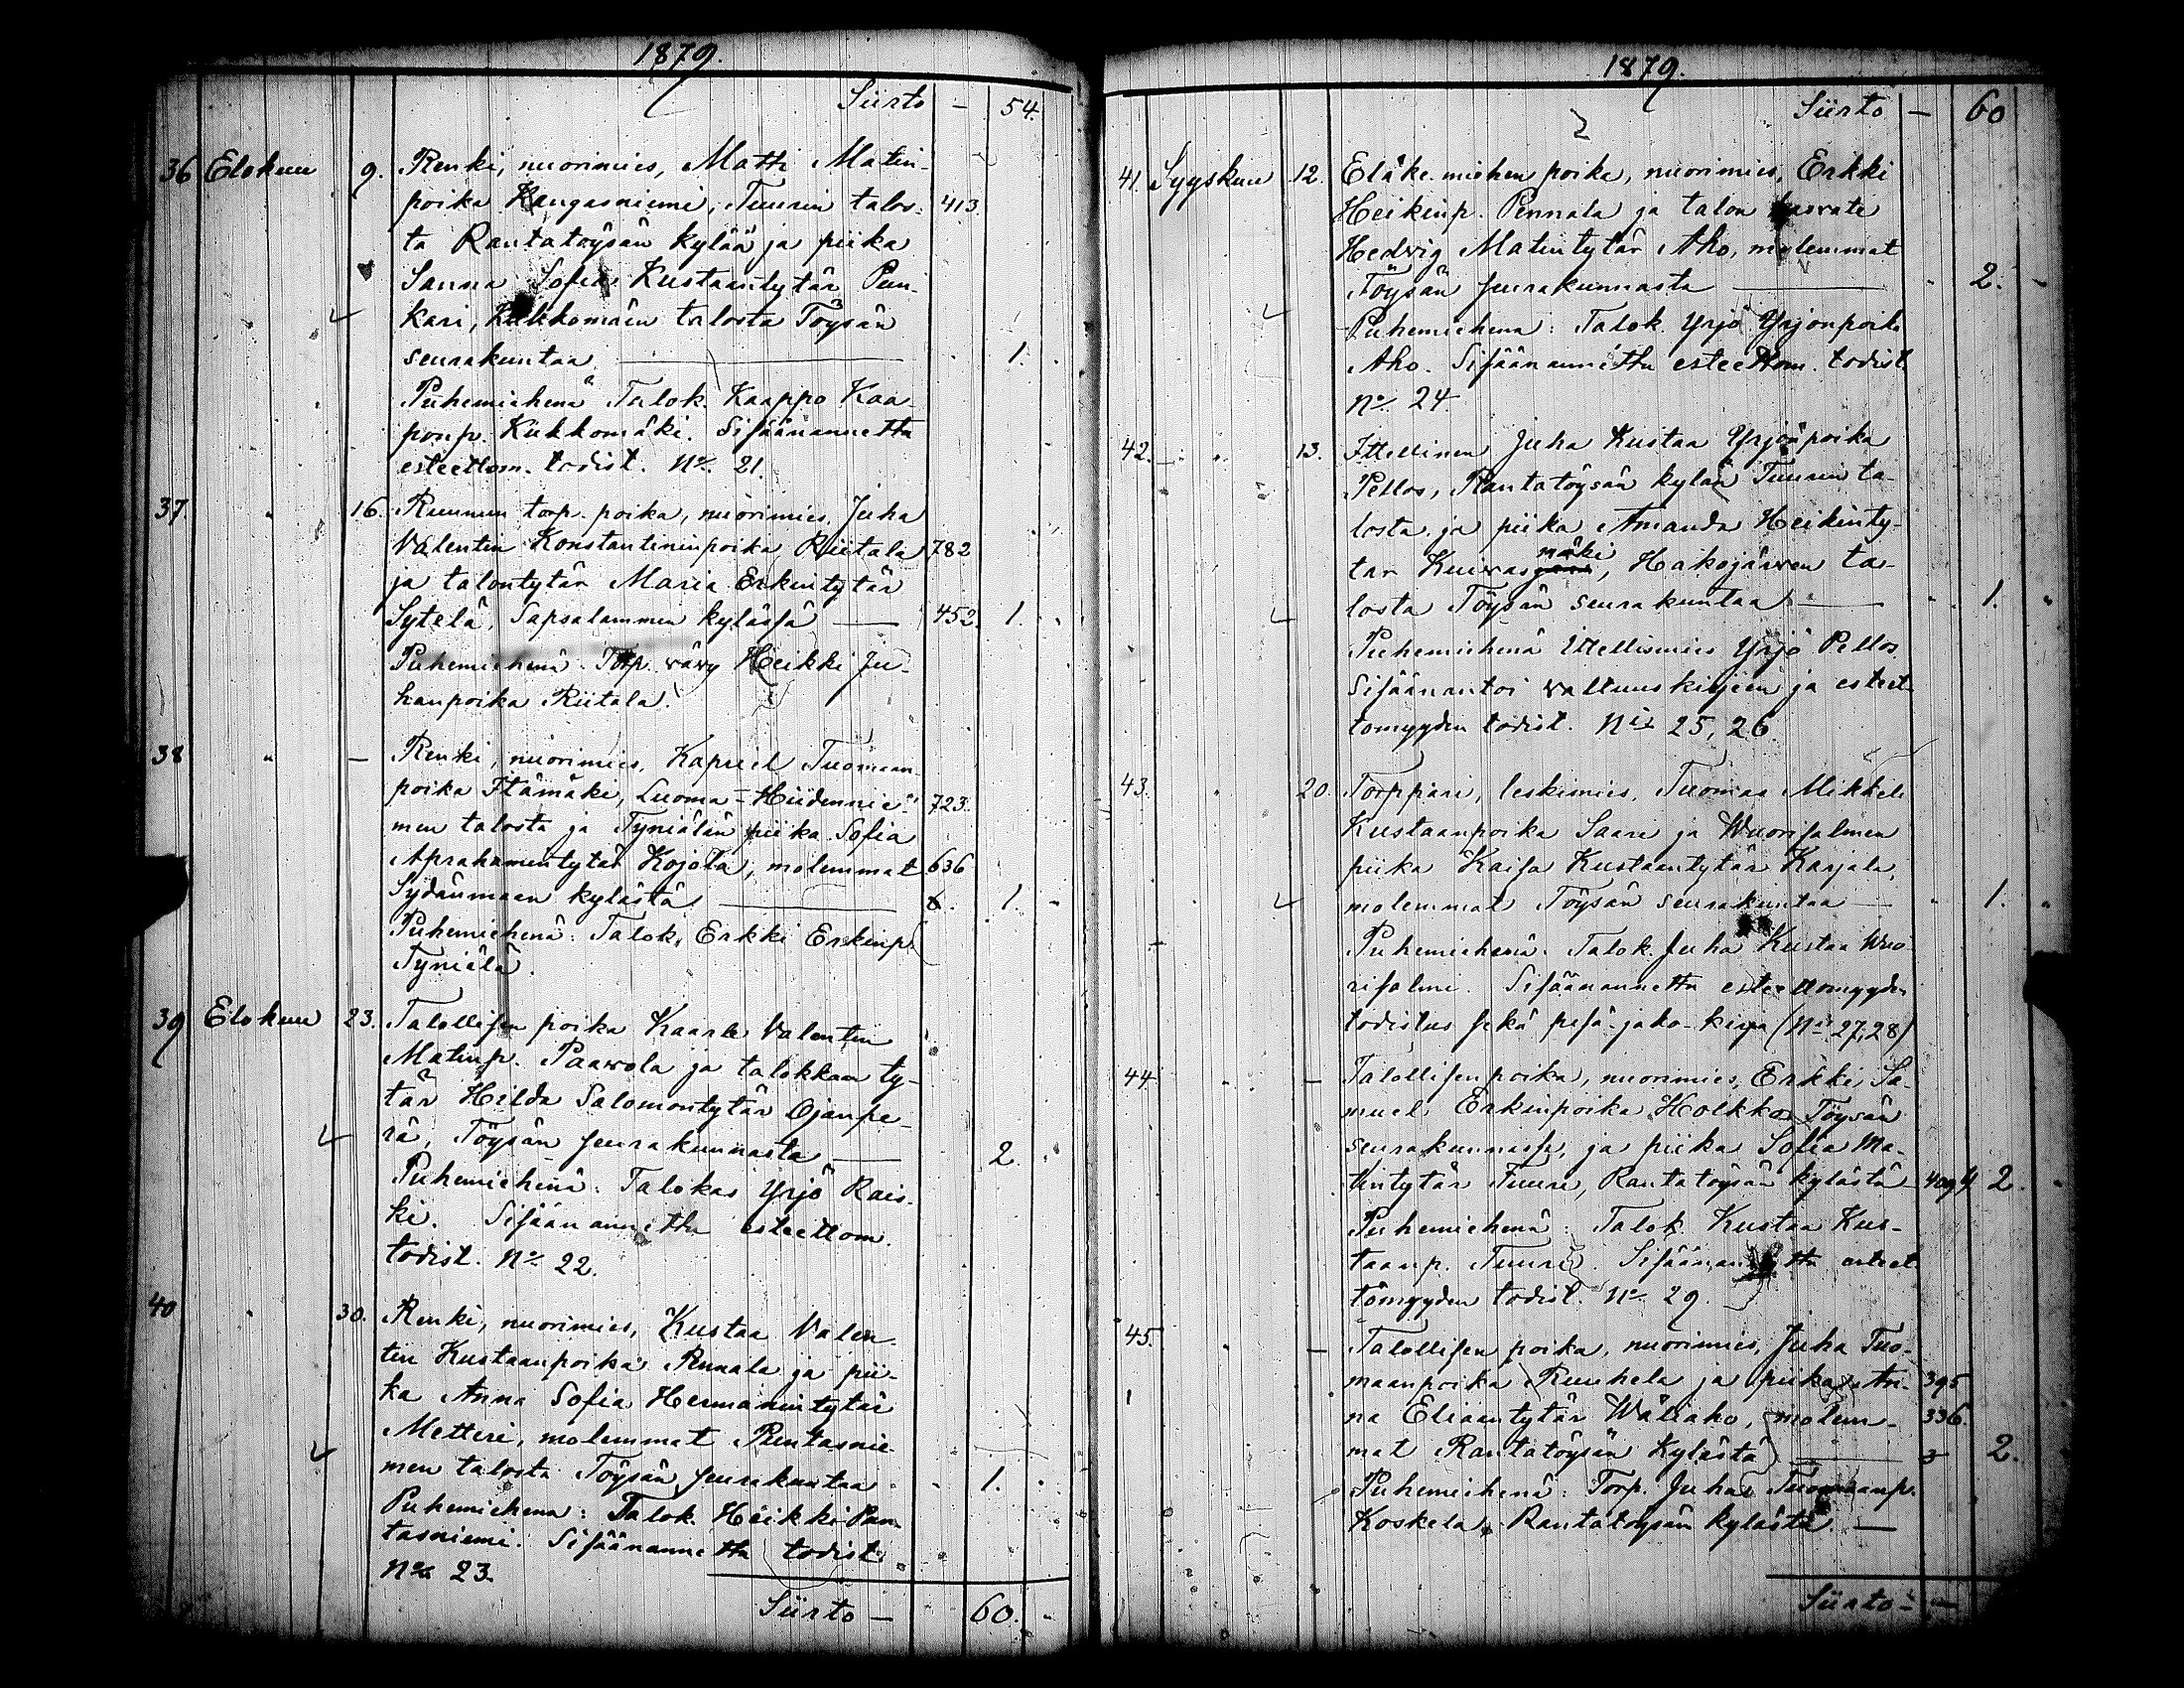 1879.
Siirto — 54.
36 Elokuu 9. Renki, nuorimies, Matti Matin-
poika Kangasniemi, Tuurin talos- 413.
ta Rantatöysän kylää ja piika
Sanna Sofia Kustaantytär Pun-
kari, Kukkomäen talosta Töysän
seurakuntaa. — 1.
Puhemiehenä Talok. Kaappo Kaa-
ponp. Kukkomäki. Sisäänannettu
esteettom. todist. No 21.
37. " 16. Ruunun torp. poika, nuorimies, Juha
Valentin Konstantininpoika Riitala 782
ja talontytär Maria Erkintytär
Sytelä, Sapsalammen kylässä — 452. 1.
Puhemiehenä Torp. vävy Heikki Ju-
hanpoika Riitala.
38 " — Renki, nuorimies, Kapriel Tuomaan-
poika Itämäki, Luoma-Hiidennie- 723.
men talosta ja Tyniälän piika Sofia
Aprahamintytär Kojola, molemmat 636
Sydänmaan kylästä — 1.
Puhemiehenä: Talok. Erkki Erkinp.
Tyniälä.
39 Elokuu 23. Talollisen poika Kaarle Valentin
Matinp. Paavola ja talokkaan ty-
tär Hilda Salomontytär Ojanpe-
rä, Töysän seurakunnasta — 2.
Puhemiehenä: Talokas Yrjö Rais-
ki. Sisäänannettu esteettom.
todist. No 22.
40 " 30. Renki, nuorimies, Kustaa Valen-
tin Kustaanpoika Pennala ja pii-
ka Anna Sofia Hermanintytär
Metteri, molemmat Pentasnie-
men talosta Töysän seurakuntaa 1.
Puhemiehenä: Talok. Heikki Pen-
tasniemi. Sisäänannettu todist.
No 23.
Siirto — 60.
1879.
Siirto — 60
41. Syyskuu 12. Eläke-miehen poika, nuorimies, Erkki
Heikinp. Pennala ja talon kasvate
Hedvig Matintytär Aho, molemmat
Töysän seurakunnasta — 2.
Puhemiehenä: Talok. Yrjö Yrjönpoika
Aho. Sisäänannettu esteettom. todist.
No 24.
42. " 13. Ittellinen Juha Kustaa Yrjönpoika
Pellos, Rantatöysän kylän Tuurin ta-
losta, ja piika Amanda Heikinty-
mäki
tär Kuivas, Hakojärven ta-
losta Töysän seurakuntaa — 1.
Puhemiehenä Ittellismies Yrjö Pellos.
Sisäänantoi valtuuskirjeen ja esteet-
tömyyden todist. No 25, 26.
43. 20. Torppari, leskimies, Tuomas Mikkeli
Kustaanpoika Saari ja Wuorisalmen
piika Kaisa Kustaantytär Karjala,
molemmat Töysän seurakuntaa — 1.
Puhemiehenä: Talok. Juha Kustaa Wuo-
risalmi. Sisäänannettu esteettömyyden
todistus sekä pesä-jako-kirja (No 27, 28)
44 — Talollisen poika, nuorimies, Erkki Sa-
muel Erkinpoika Holkko Töysän
seurakunnasta, ja piika Sofia Ma-
tintytär Tuuri, Rantatöysän kylästä 409 2.
Puhemiehenä: Talok. Kustaa Kus-
taanp. Tuuri. Sisäänannettu esteet-
tömyyden todist. No 29.
45. — Talollisen poika, nuorimies, Juha Tuo-
maanpoika Ruuhela ja piika An- 395
na Eliaantytär Wäliaho, molem- 336.
mat Rantatöysän kylästä — 2.
Puhemiehenä: Torp. Juha Tuomaanp.
Koskela, Rantatöysän kylästä. —
Siirto —